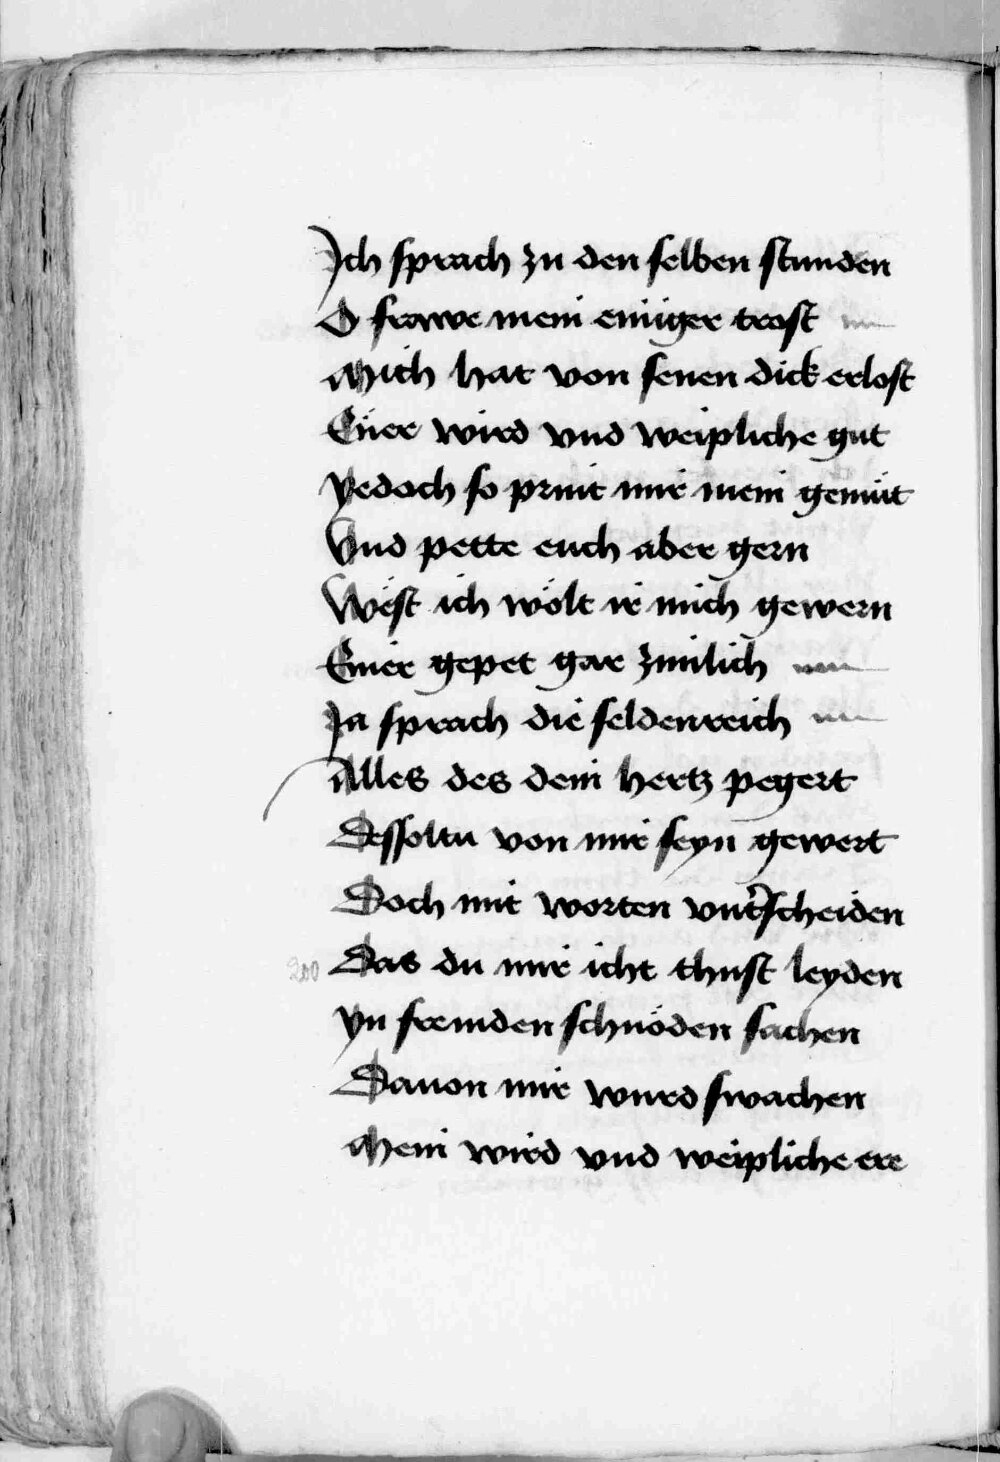 Ich sprach zu den selben stunden
O frawe mein einiger trost
Mich hat von senen dick erlost
Eüer wird vnd weipliche gut
Yedoch so print mir mein gemüt
Vnd pette euch aber gern
West ich wölt ir mich gewern
Euer gepet gar zimlich
Ja sprach die seldenreich
Alles des dein hertz pegert
Dessoltu von mir seyn gewert
Doch mit worten vnterscheiden
200 Das du mir icht thust leyden
Yn fremden schnöden sachen
Dauon mir wurd swachen
Mein wird vnd weipliche ere